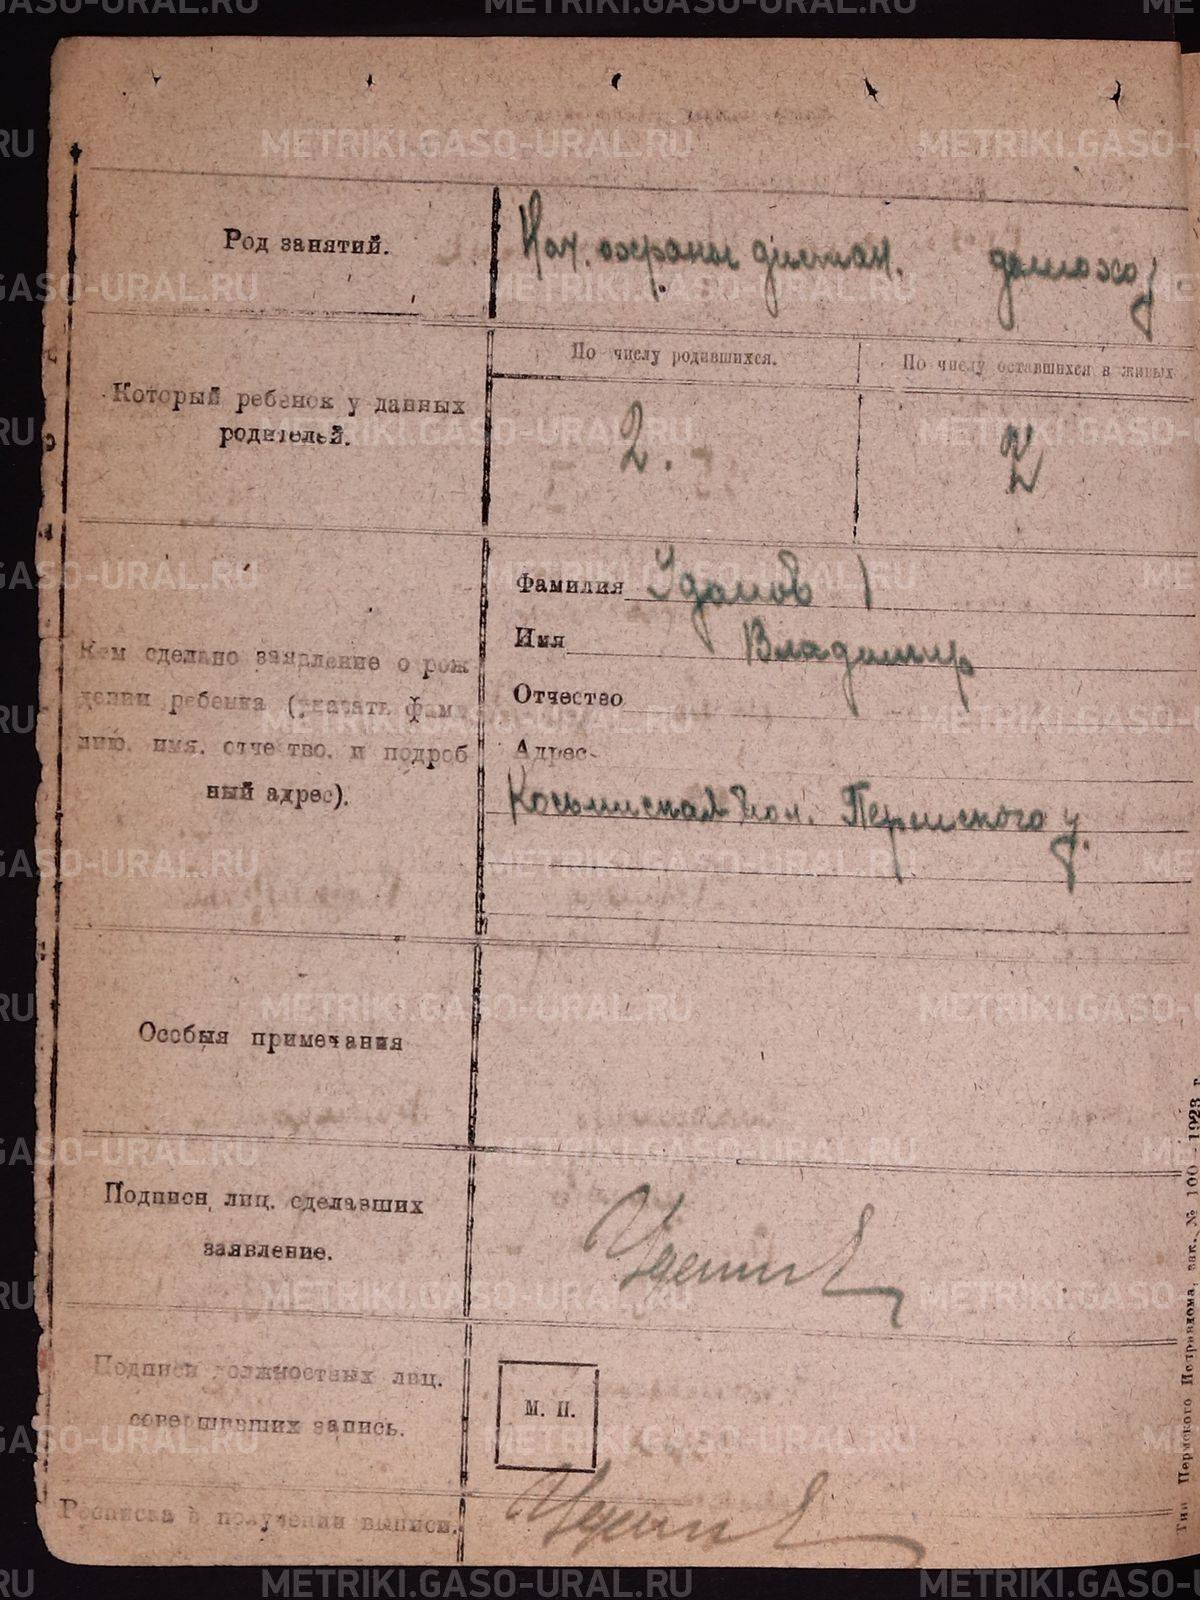 METRIKI.GASO-URAL.RU
Род занятий.
Нач. охраны дистан. домохоз
Который ребенок у данных
родителей.
По числу родившихся.
По числу оставшихся в живых
2.
2
Кем сделано заявление о рож
дении ребенка (указать фами
лию, имя, отчество, и подроб
ный адрес).
Фамилия
Имя Владимир
Отчество
Адрес-
Пермского у.
Особыя примечания
Подписи, лиц, сделавших
заявление.
Подписи должностных лиц,
совершивших запись.
М. П.
Росписка в получении выписи.
Тип. Пермского Исправдома, зак. № 100 1923 г.